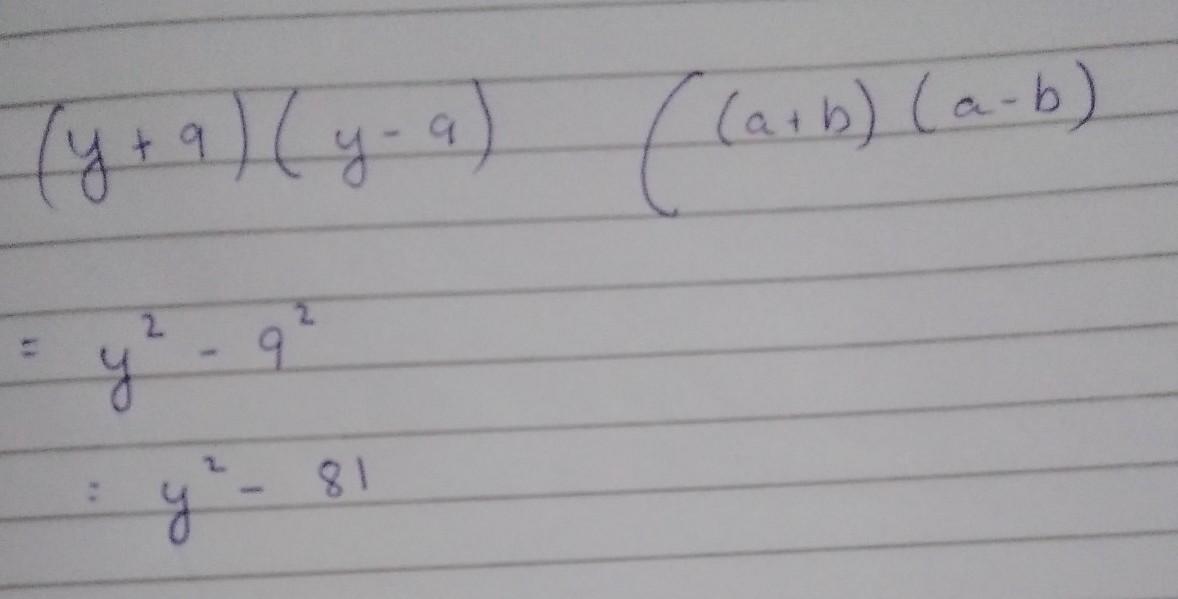 (y + 9)(y - 9) ((a + b)(a - b)
= y² - 9²
: y² - 81